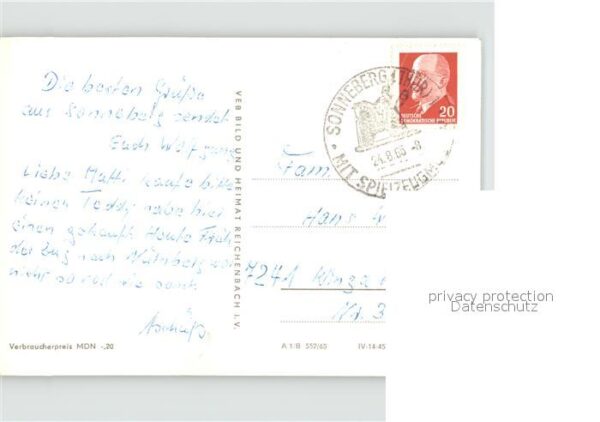 Die besten Grüße
aus Sonneberg sendet
Euch Wolfgang
Liebe Mutti kaufe bitte
keinen Teddy habe hier
einen gekauft Heute Früh
der Zug nach Nürnberg war
nicht so voll wie sonst
VEB BILD UND HEIMAT REICHENBACH I. V.
SONNEBERG (THÜR)
24.8.66-8
MIT SPIELZEUGM
DEUTSCHE
DEMOKRATISCHE REPUBLIK
20
Fam
Hans
7241
Nr. 3
Verbraucherpreis MDN -,20
A 1/B 557/65
IV-14-45
privacy protection
Datenschutz